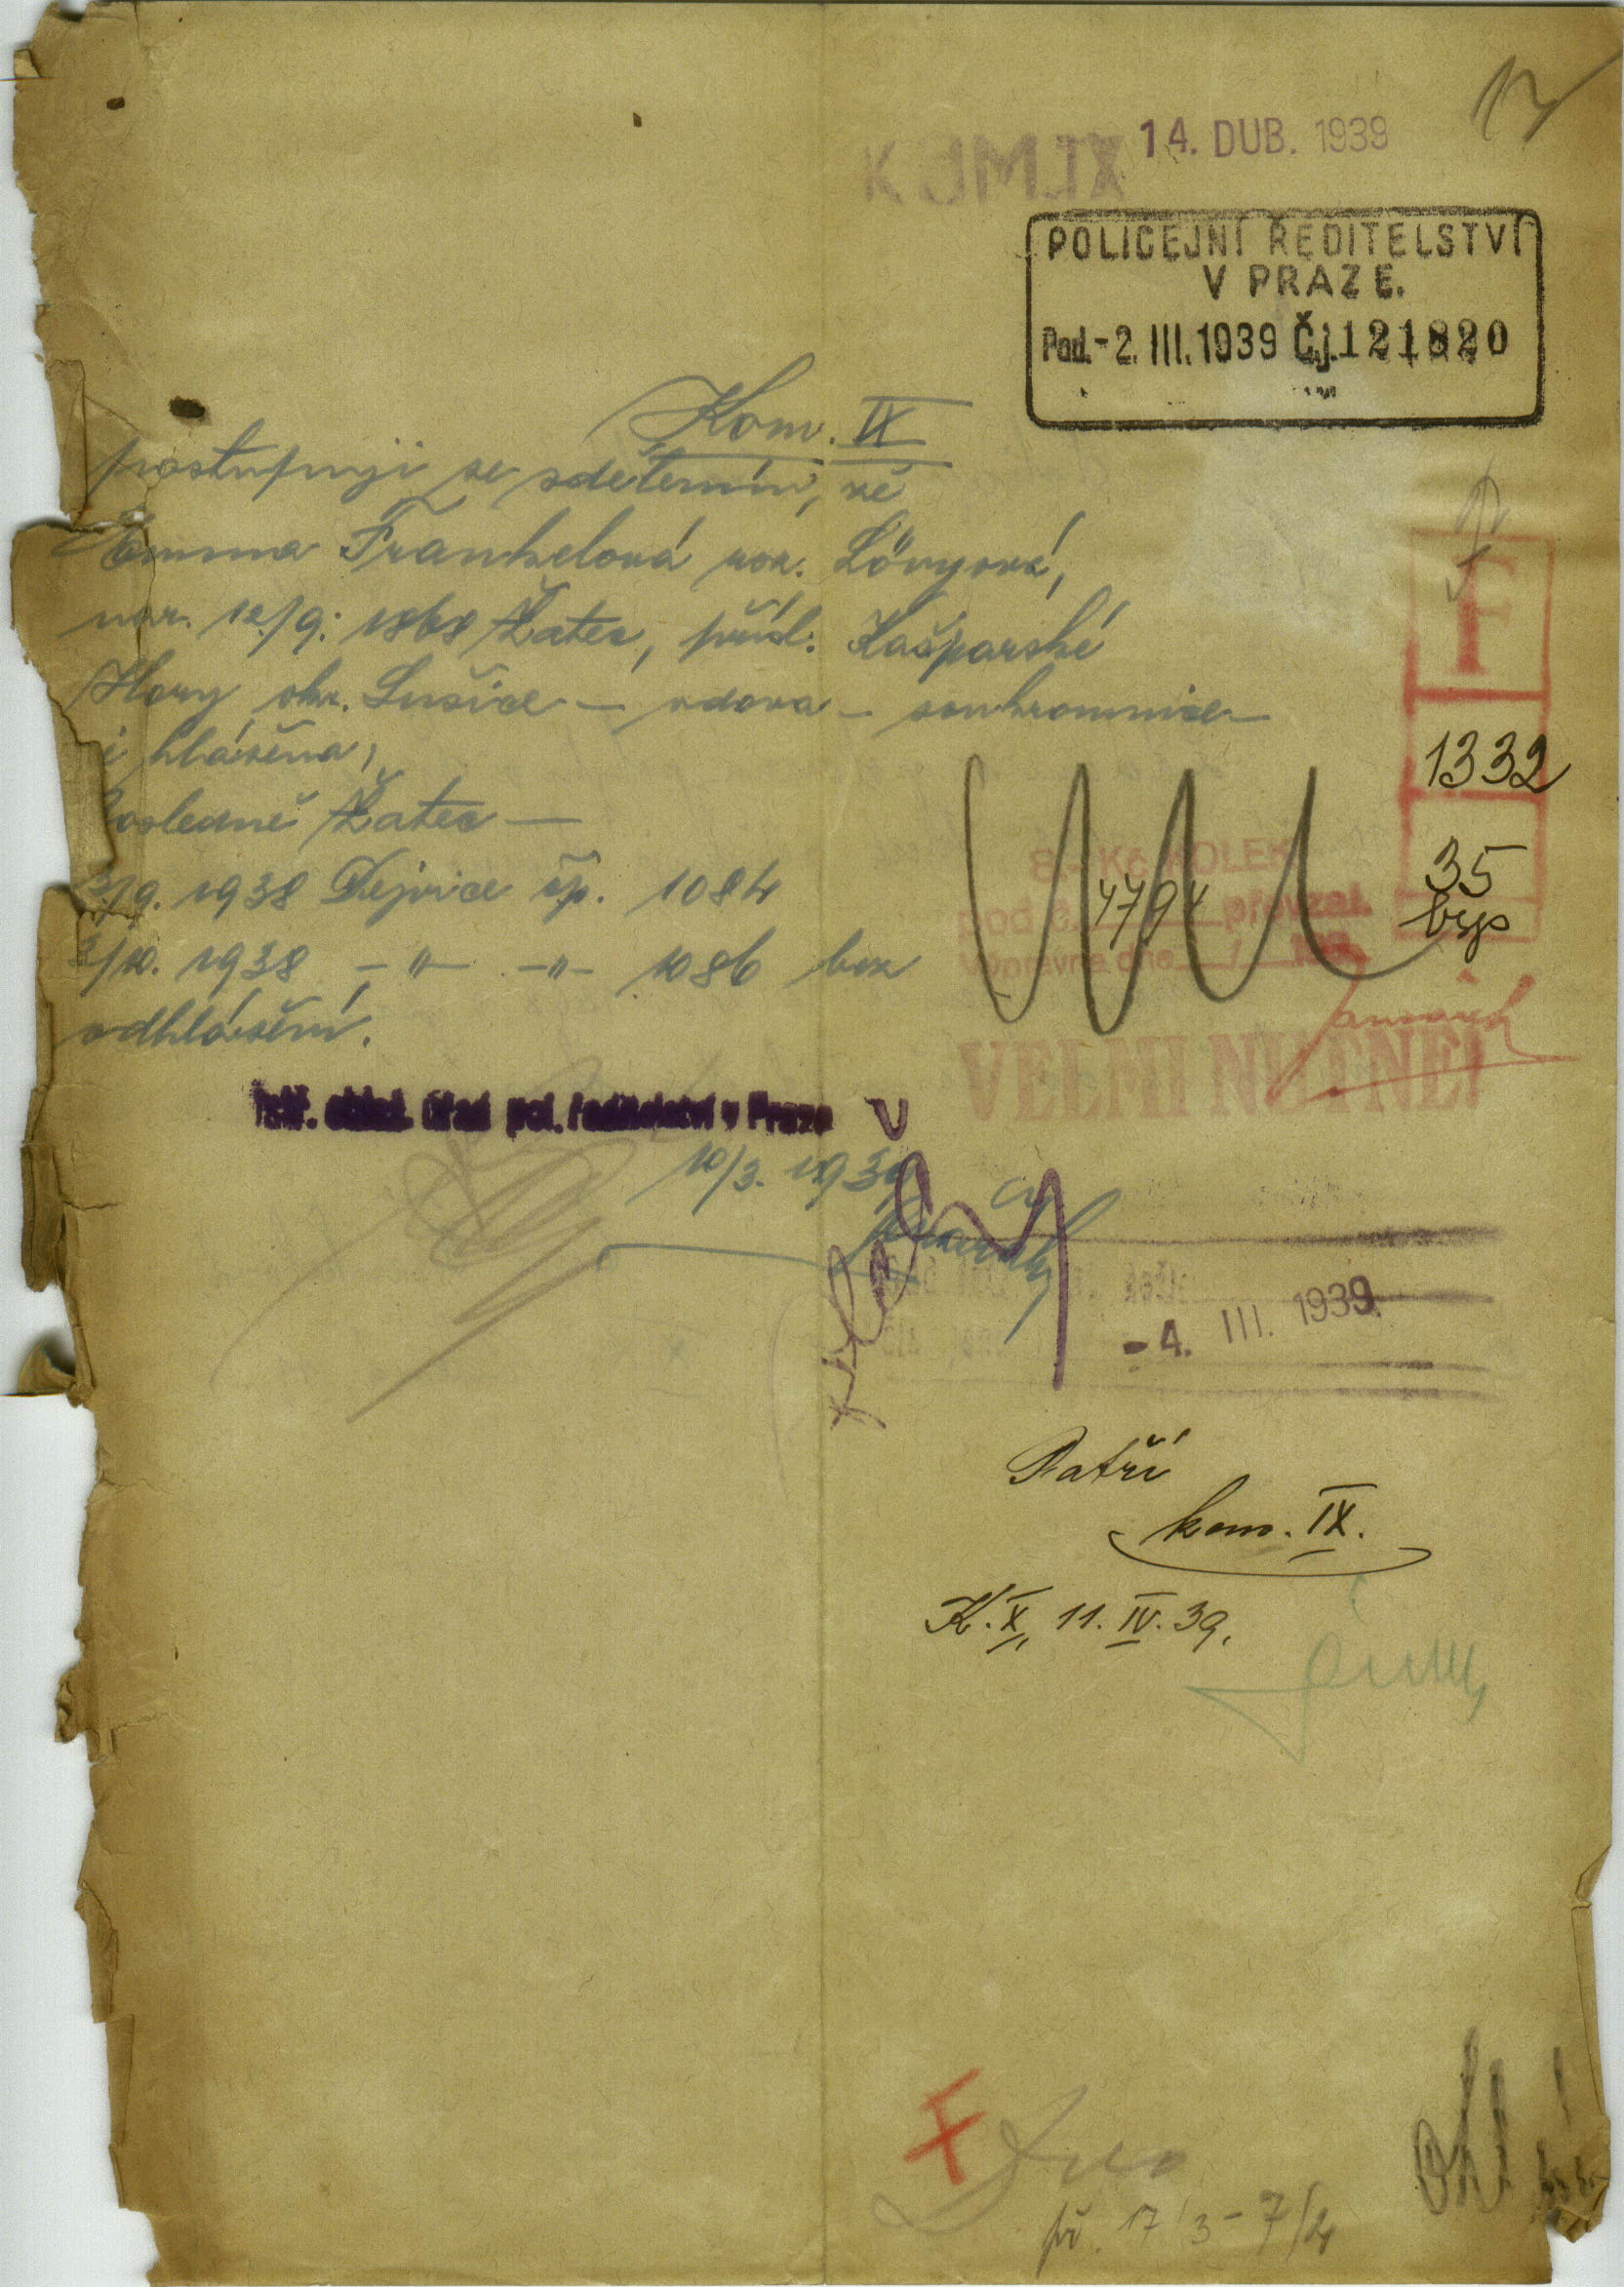 17
14. DUB. 1939
POLICEJNÍ ŘEDITELSTVÍ
V PRAZE.
Pod. - 2. III. 1939 Č.j. 121820
Kom. IX
postupuji se sdělením, že
Emma Frankelová roz. Lövyová,
nar. 12/9. 1868 Žatec, přísl. Kašparské
Hory okr. Sušice – vdova – soukromnice
i hlášena,
posledně Žatec –
3/9. 1938 Dejvice čp. 1084
3/10. 1938 – " – – " – 1086 bez
odhlášení.
F
1332
35
bsp
8.- Kč KOLEK
pod č. 4794 převzal.
Výpravna dne / 193
VELMI NUTNÉ!
úřad pol. ředitelství v Praze
10/3. 1939
- 4. III. 1939
Patří
kom. IX.
K. X, 11. IV. 39.
př. 17/3 - 7/4